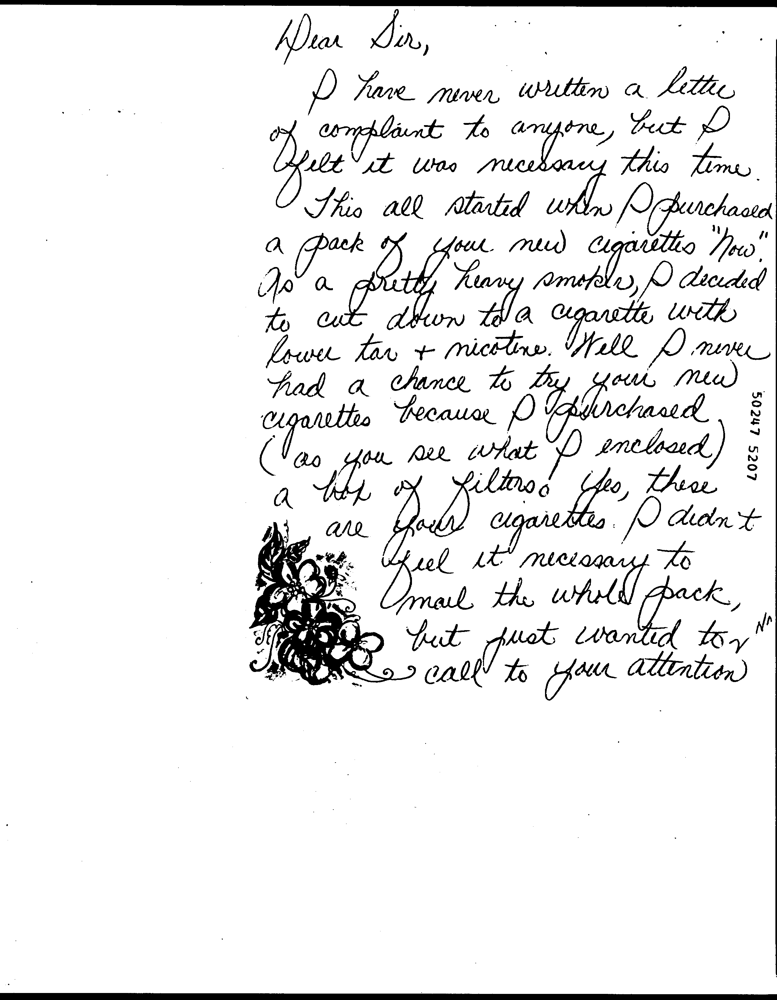 Dear Sir,
I have never written a letter
of complaint to anyone, but I
felt it was necessary this time.
This all started when I purchased
a pack of your new cigarettes "Now".
As a pretty heavy smoker, I decided
to cut down to a cigarette with
lower tar + nicotine. Well I never
had a chance to try your new
cigarettes because I purchased
(as you see what I enclosed)
a box of filters! Yes, these
are your cigarettes. I didn't
feel it necessary to
mail the whole pack,
but just wanted to
call to your attention
50247 5207